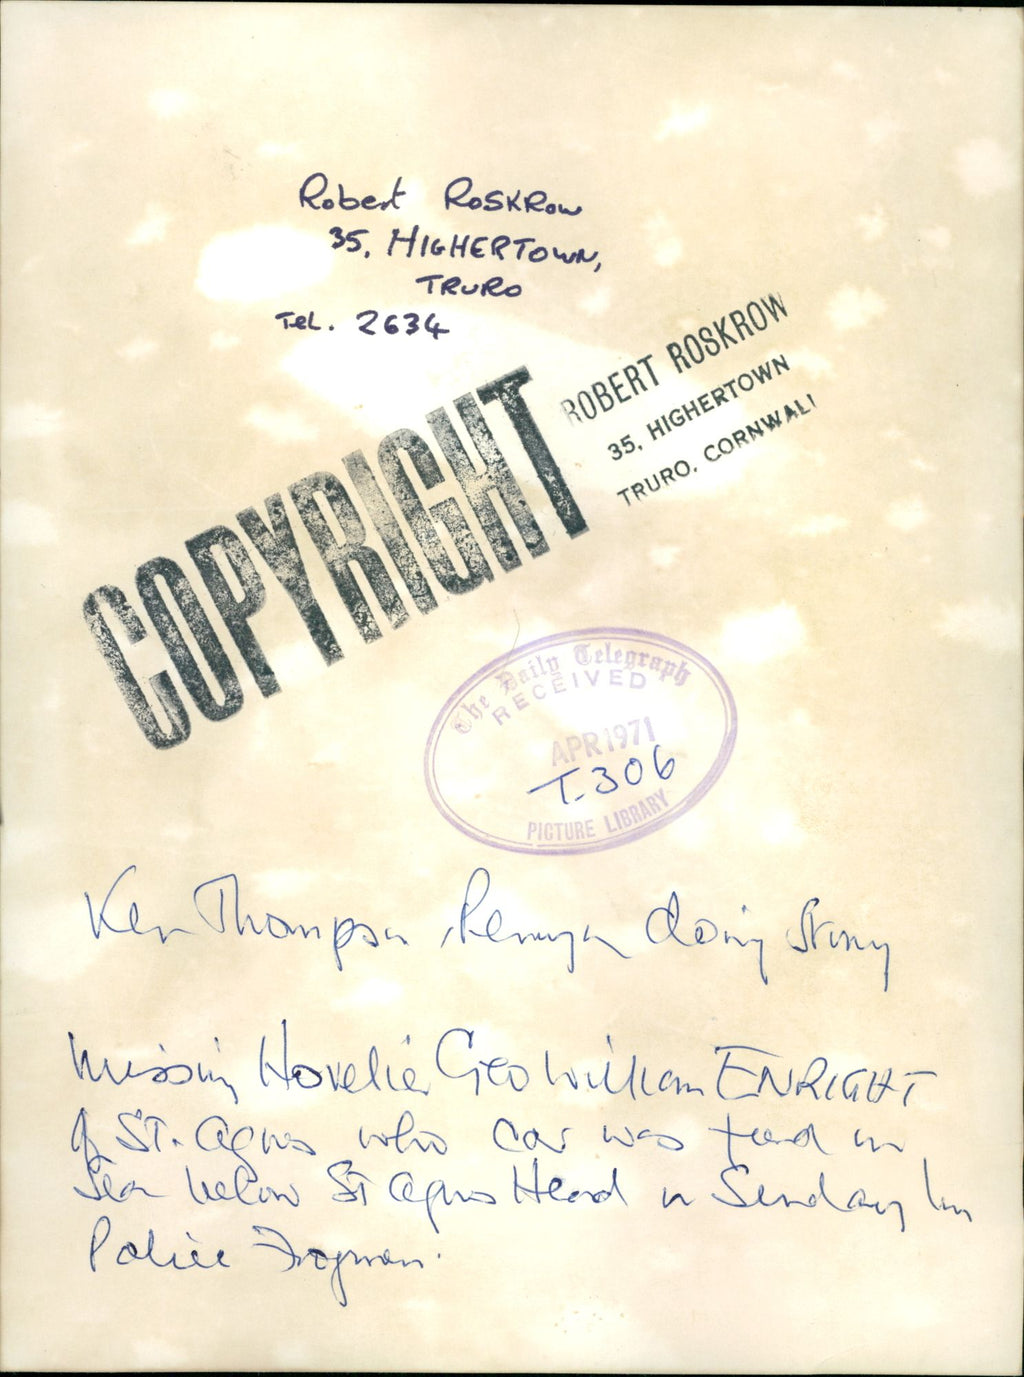 Robert Roskrow
35, HIGHERTOWN,
TRURO
Tel. 2634
COPYRIGHT
ROBERT ROSKROW
35, HIGHERTOWN
TRURO, CORNWALL
The Daily Telegraph
RECEIVED
APR 1971
T.306
PICTURE LIBRARY
Ken Thompson, Penryn doing story
Missing Hotelier Geo William ENRIGHT
of ST. Agnes who car was found in
Sea below St Agnes Head on Sunday by
Police Frogmen.